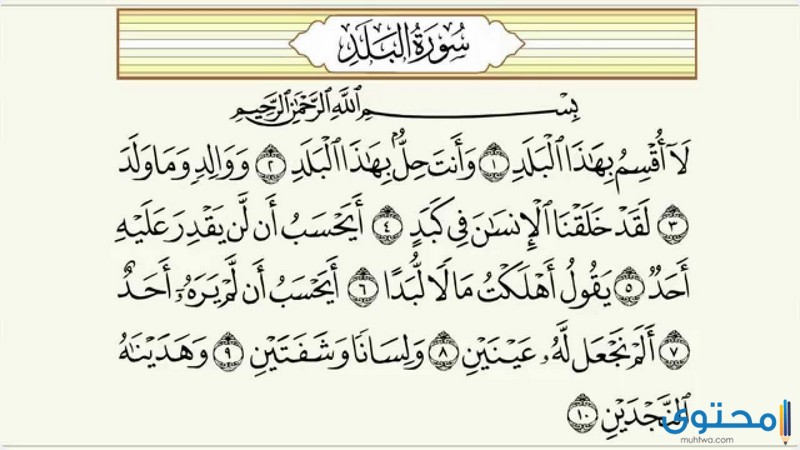 سُورَةُ البَلَدِ
بِسْمِ ٱللَّهِ ٱلرَّحْمَٰنِ ٱلرَّحِيمِ
لَآ أُقْسِمُ بِهَٰذَا ٱلْبَلَدِ ١ وَأَنتَ حِلٌّۢ بِهَٰذَا ٱلْبَلَدِ ٢ وَوَالِدٍ وَمَا وَلَدَ
٣ لَقَدْ خَلَقْنَا ٱلْإِنسَٰنَ فِي كَبَدٍ ٤ أَيَحْسَبُ أَن لَّن يَقْدِرَ عَلَيْهِ
أَحَدٌ ٥ يَقُولُ أَهْلَكْتُ مَالًا لُّبَدًا ٦ أَيَحْسَبُ أَن لَّمْ يَرَهُۥٓ أَحَدٌ
٧ أَلَمْ نَجْعَل لَّهُۥ عَيْنَيْنِ ٨ وَلِسَانًا وَشَفَتَيْنِ ٩ وَهَدَيْنَٰهُ
ٱلنَّجْدَيْنِ ١٠
محتوى
muhtwa.com